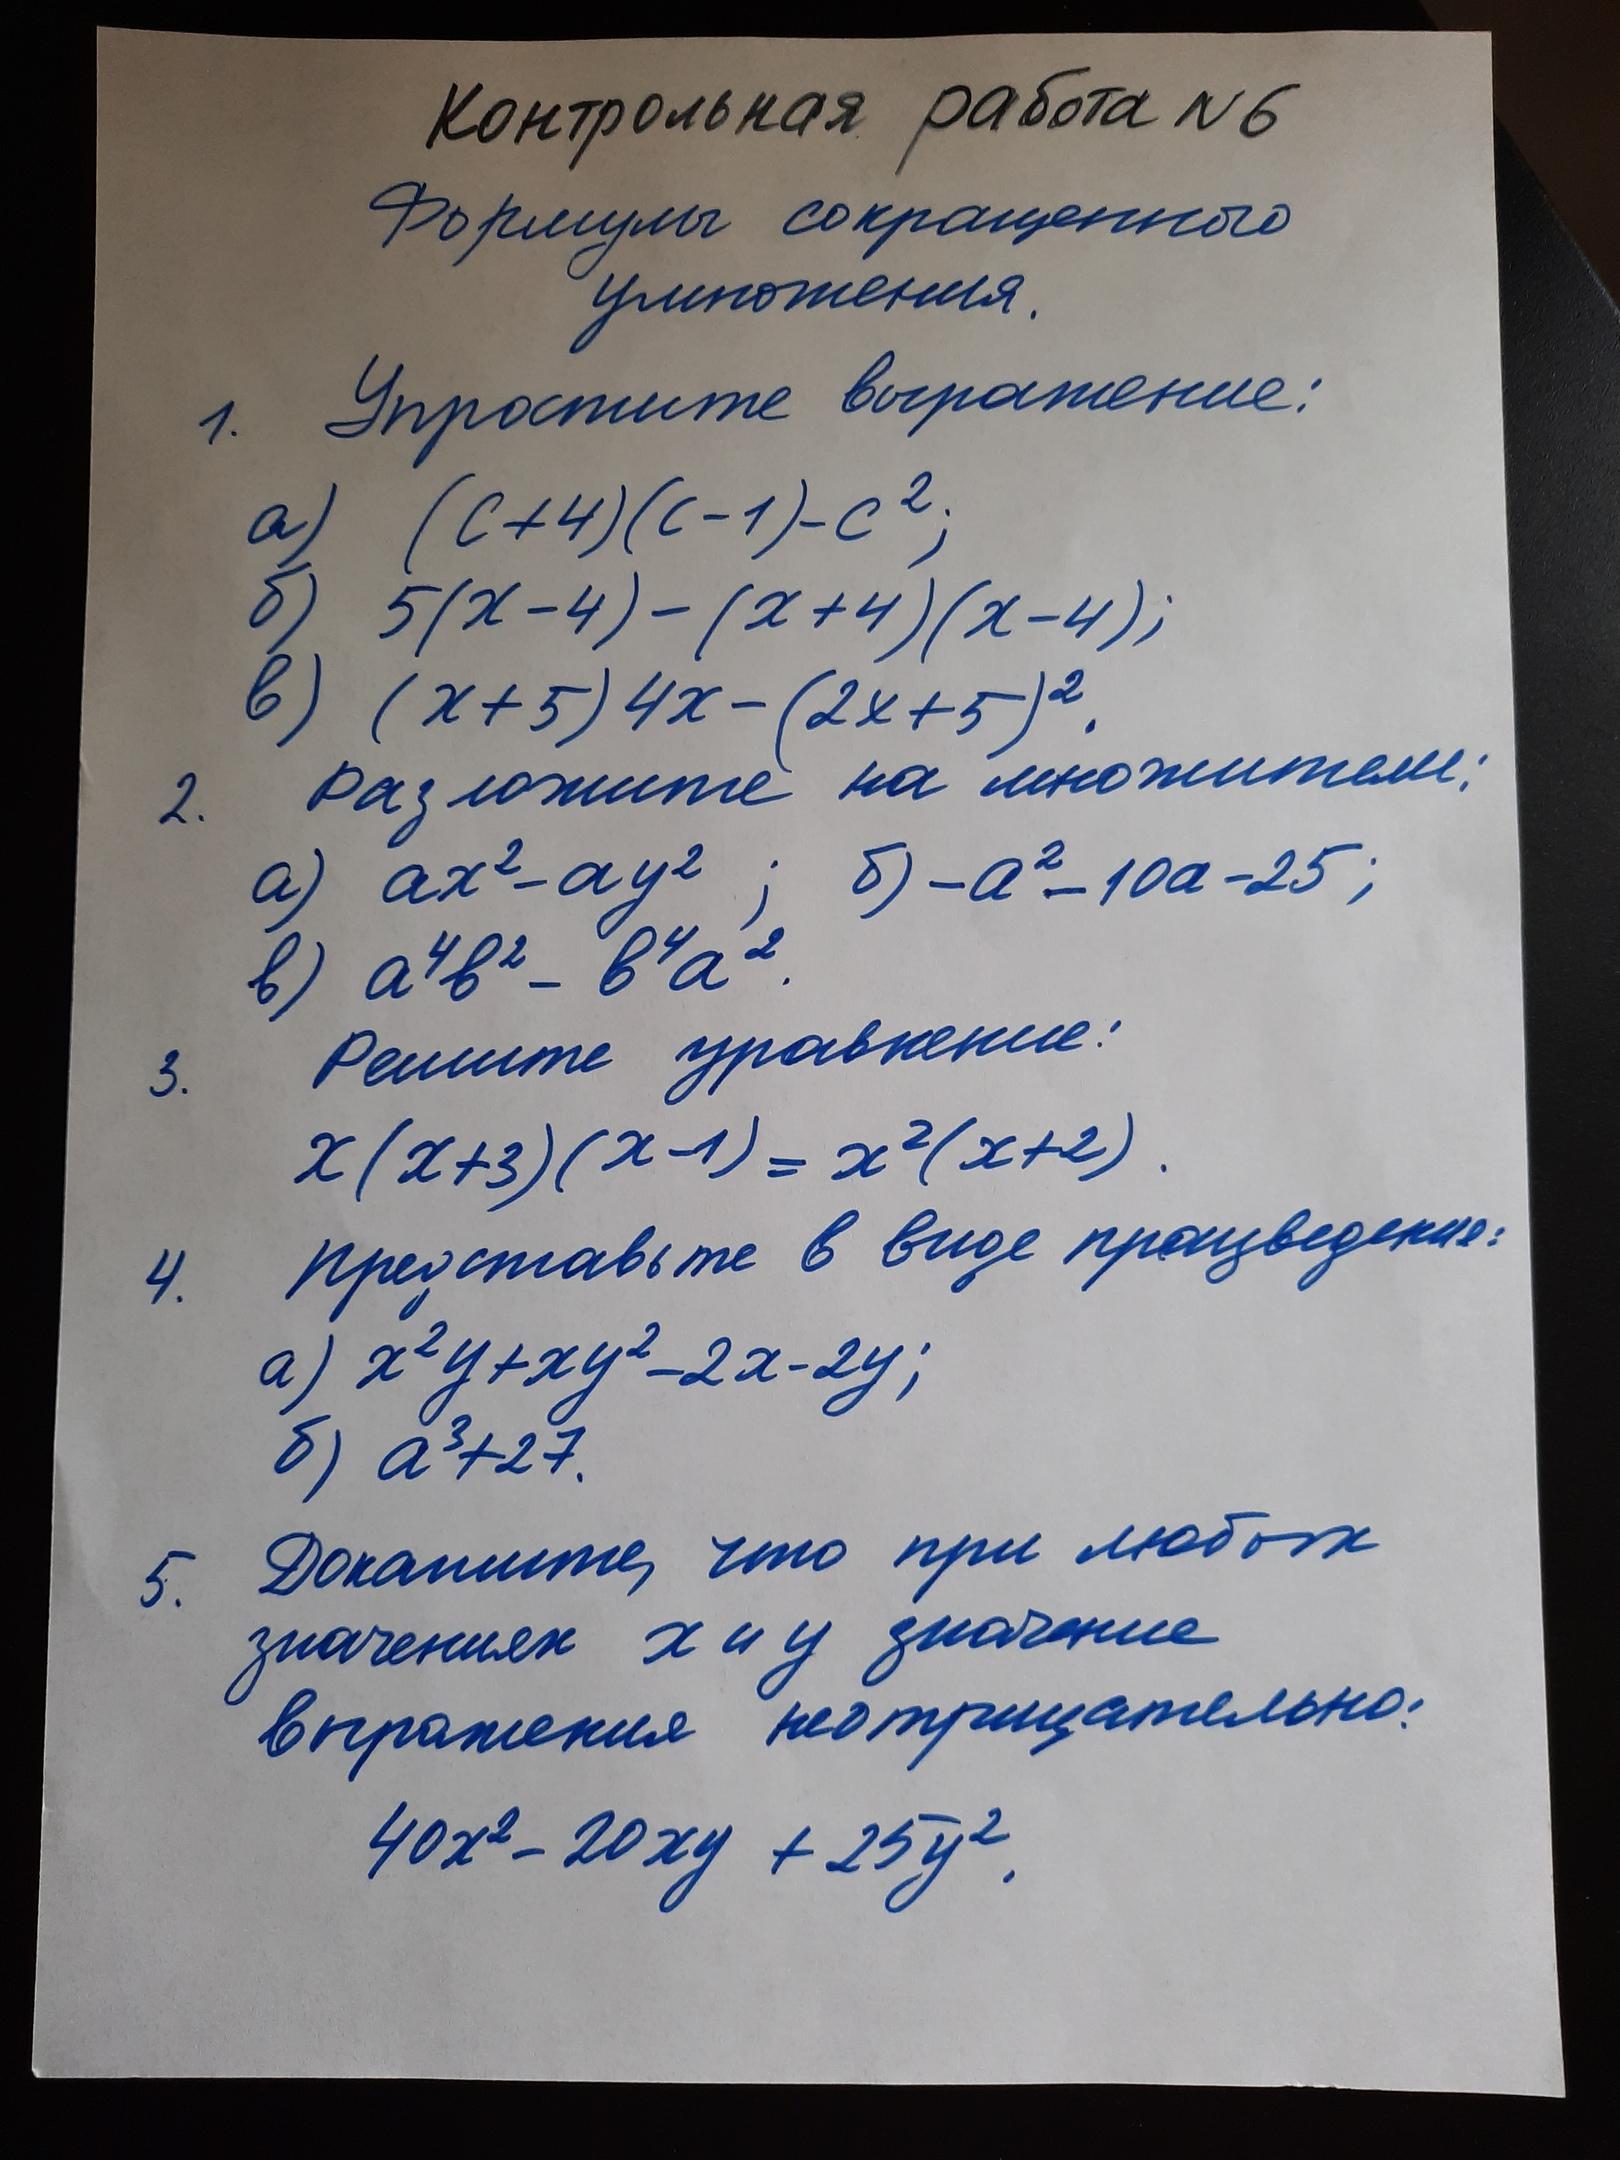 Контрольная работа N6
Формулы сокращенного
умножения.
1. Упростите выражение:
а) (c+4)(c-1)-c²;
б) 5(x-4)-(x+4)(x-4);
в) (x+5)4x-(2x+5)².
2. Разложите на множители:
а) ax²-ay² ; б) -a²-10a-25;
в) a⁴b²-b⁴a².
3. Решите уравнение:
x(x+3)(x-1)=x²(x+2).
4. Представьте в виде произведения:
а) x²y+xy²-2x-2y;
б) a³+27.
5. Докажите, что при любых
значениях x и y значение
выражения неотрицательно:
40x²-20xy+25y².